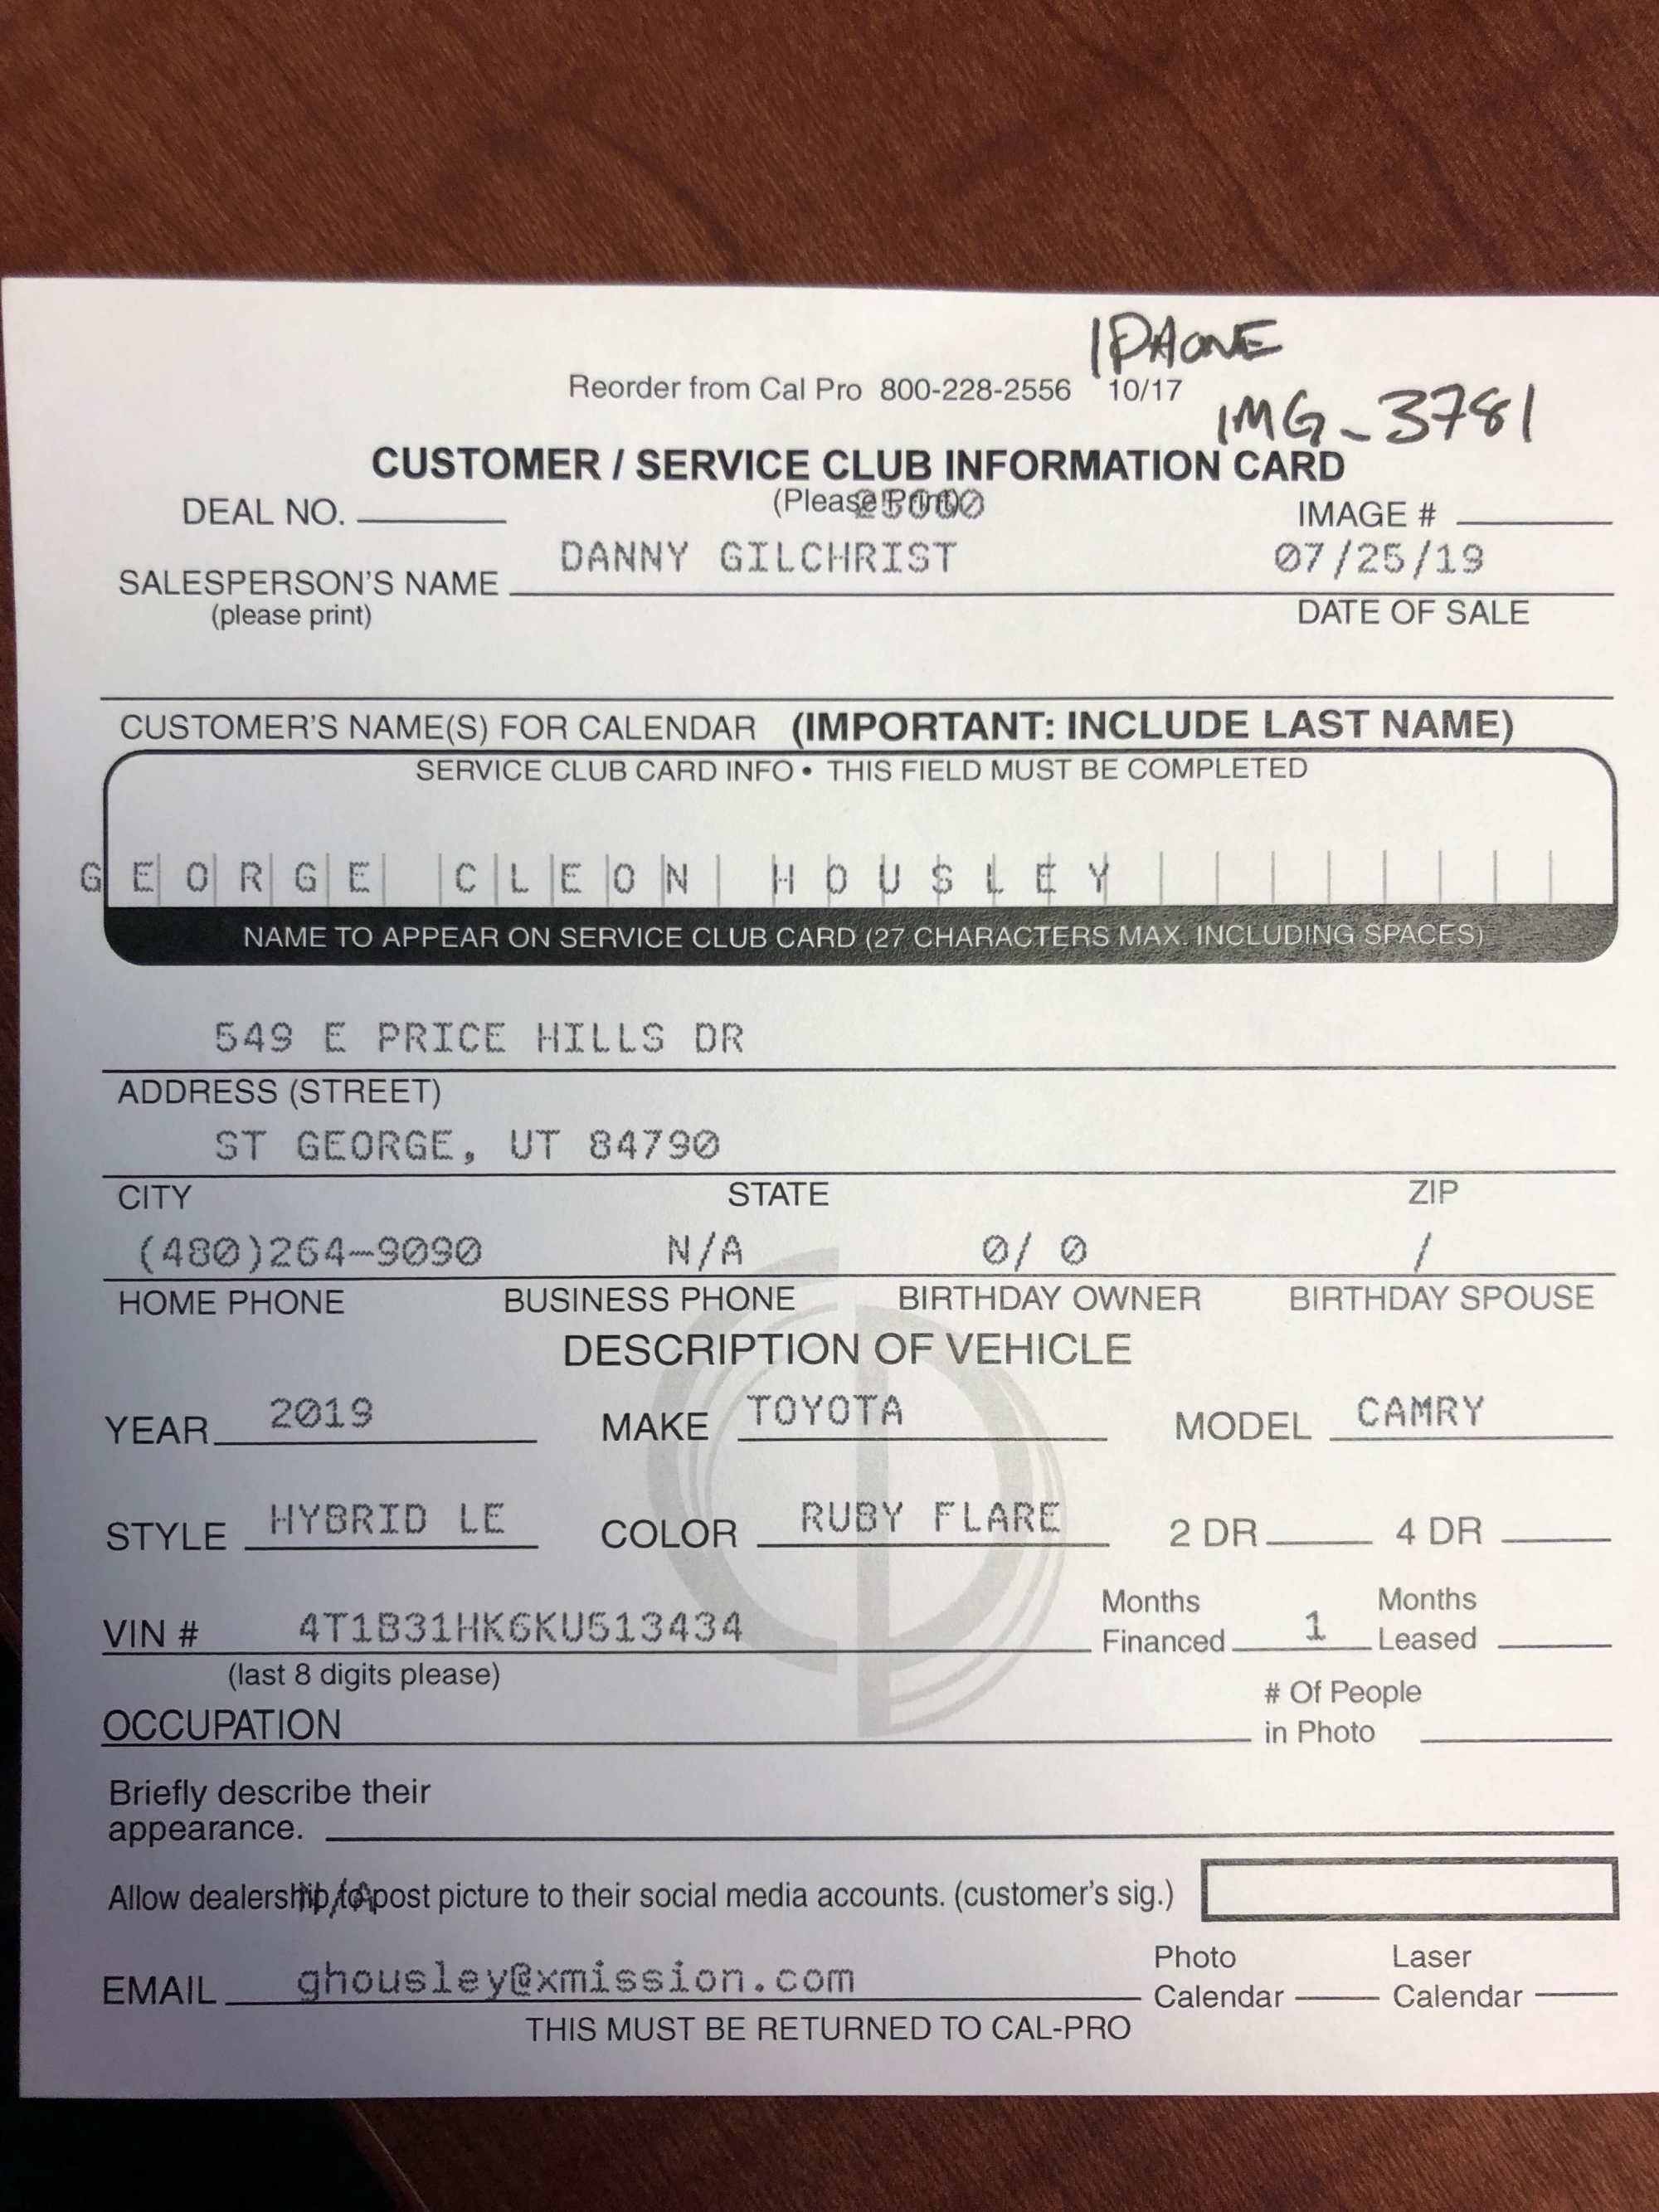 IPHONE
Reorder from Cal Pro 800-228-2556 10/17
IMG_3781
CUSTOMER / SERVICE CLUB INFORMATION CARD
(Please Print)
DEAL NO. IMAGE #
DANNY GILCHRIST 07/25/19
SALESPERSON'S NAME
(please print) DATE OF SALE
CUSTOMER'S NAME(S) FOR CALENDAR (IMPORTANT: INCLUDE LAST NAME)
SERVICE CLUB CARD INFO • THIS FIELD MUST BE COMPLETED
GEORGE CLEON HOUSLEY
NAME TO APPEAR ON SERVICE CLUB CARD (27 CHARACTERS MAX. INCLUDING SPACES)
549 E PRICE HILLS DR
ADDRESS (STREET)
ST GEORGE, UT 84790
CITY STATE ZIP
(480)264-9090 N/A 0/ 0 /
HOME PHONE BUSINESS PHONE BIRTHDAY OWNER BIRTHDAY SPOUSE
DESCRIPTION OF VEHICLE
YEAR 2019 MAKE TOYOTA MODEL CAMRY
STYLE HYBRID LE COLOR RUBY FLARE 2 DR 4 DR
VIN # 4T1B31HK6KU513434 Months Financed 1 Months Leased
(last 8 digits please)
OCCUPATION # Of People in Photo
Briefly describe their
appearance.
N/A
Allow dealership to post picture to their social media accounts. (customer's sig.)
EMAIL ghousley@xmission.com Photo Calendar Laser Calendar
THIS MUST BE RETURNED TO CAL-PRO